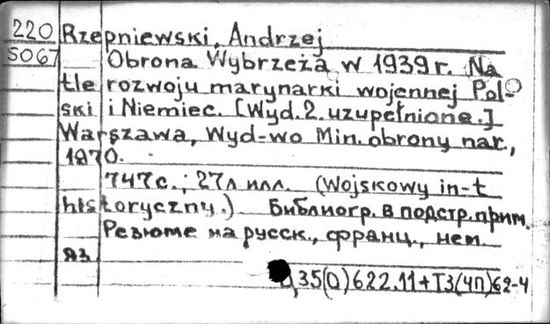 220
5067
Rzepniewski, Andrzej
Obrona Wybrzeża w 1939 r. Na
tle rozwoju marynarki wojennej Pol-
ski i Niemiec. [Wyd. 2. uzupełnione.]
Warszawa, Wyd-wo Min. obrony nar.,
1970.
747с.; 27л илл. (Wojskowy in-t
historyczny.) Библиогр. в подстр. прим.
Резюме на русск., франц., нем.
яз.
35(0)622.11+Т3(4П)62-4